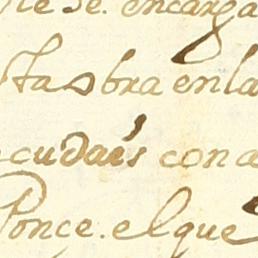 se encarga
sta obra en la
acudais con a
Ponce. el que